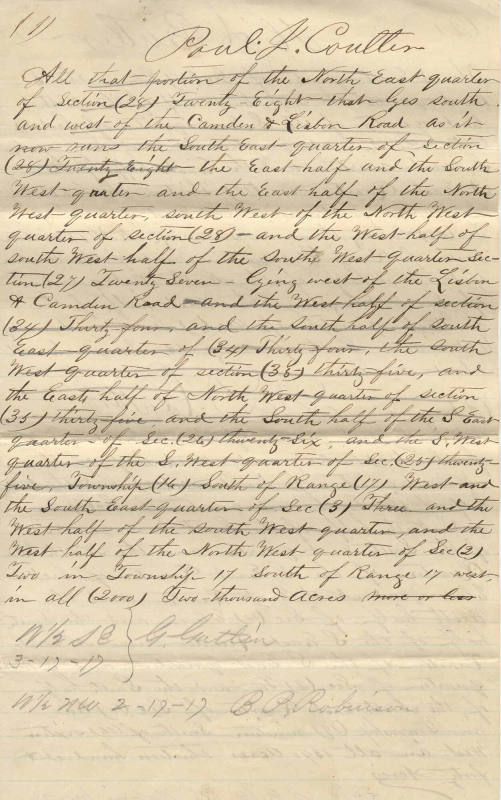 (1)
Paul. J. Coulter
All that portion of the North East quarter
of Section (28) Twenty Eight that lyes south
and west of the Camden & Lisbon Road as it
now runs the South East quarter of section
(28) Twenty Eight the East half and the South
West quater and the East half of the North
West quarter, south West of the North West
quarter of section (28) - and the West half of
south West half of the southe West quarter sec-
tion (27) Twenty Seven - lying west of the Lisbon
& Camden Road - and the West half of section
(34) Thirty four, and the south half of south
East quarter of (34) Thirty four, the south
West quarter of section (35) thirty-five, and
the East half of North West quarter of section
(35) thirty-five and the South half of the S. East
quarter - of Sec. (26) thwenty-Six, and the S. West
quarter of the S. West quarter of Sec. (25) thwenty
five, Township (16) South of Range (17) West and
the South East quarter of Sec (3) Three and the
West half of the south West quarter, and the
West half of the North West quarter of Sec (2)
Two in Township 17 South of Range 17 west
in all (2000) Two thousand Acres more or less
W½ SE } G. Gutlin
3-17-17
W½ NW 2-17-17 B. B. Robinson